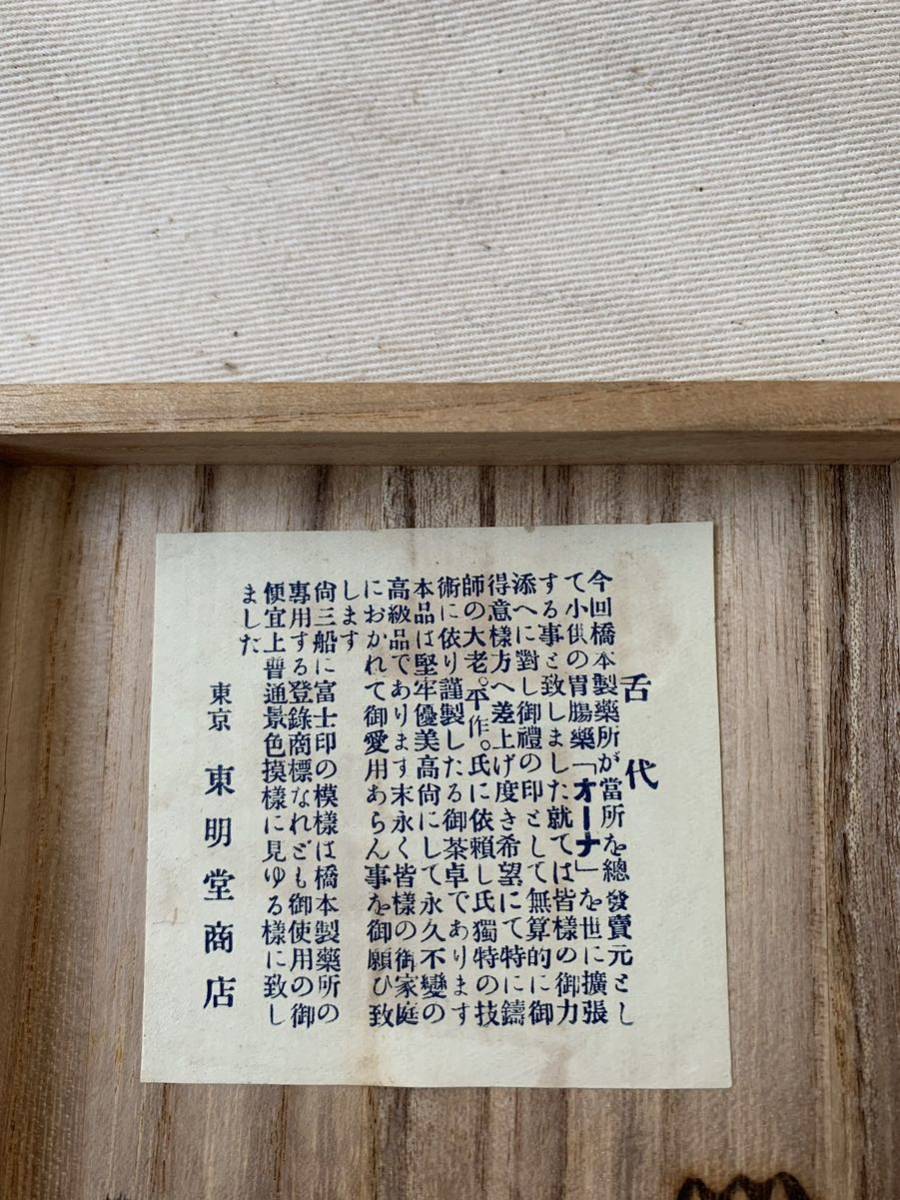 舌代
今回橋本製藥所が當所を總發賣元とし
て小供の胃膓藥「オーナ」を世に擴張
する事と致しました就ては皆樣の御力
添へに對し御禮の印として無算的に御
得意樣方へ差上げ度き希望にて特に鑄
師の大老。平作。氏に依頼し氏獨特の技
術に依り謹製したる御茶卓であります
本品は堅牢優美高尙にして永久不變の
高級品であります末永く皆樣の御家庭
におかれて御愛用あらん事を御願ひ致
します
尙三船に富士印の模樣は橋本製藥所の
專用する登錄商標なれども御使用の御
便宜上普通景色摸樣に見ゆる樣に致し
ました
東京 東明堂商店